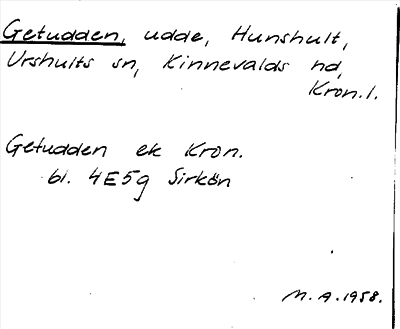 Getudden, udde, Hunshult,
Urshults sn, Kinnevalds hd,
Kron.l.
Getudden ek Kron.
bl. 4E5g Sirkön
M.A.1958.